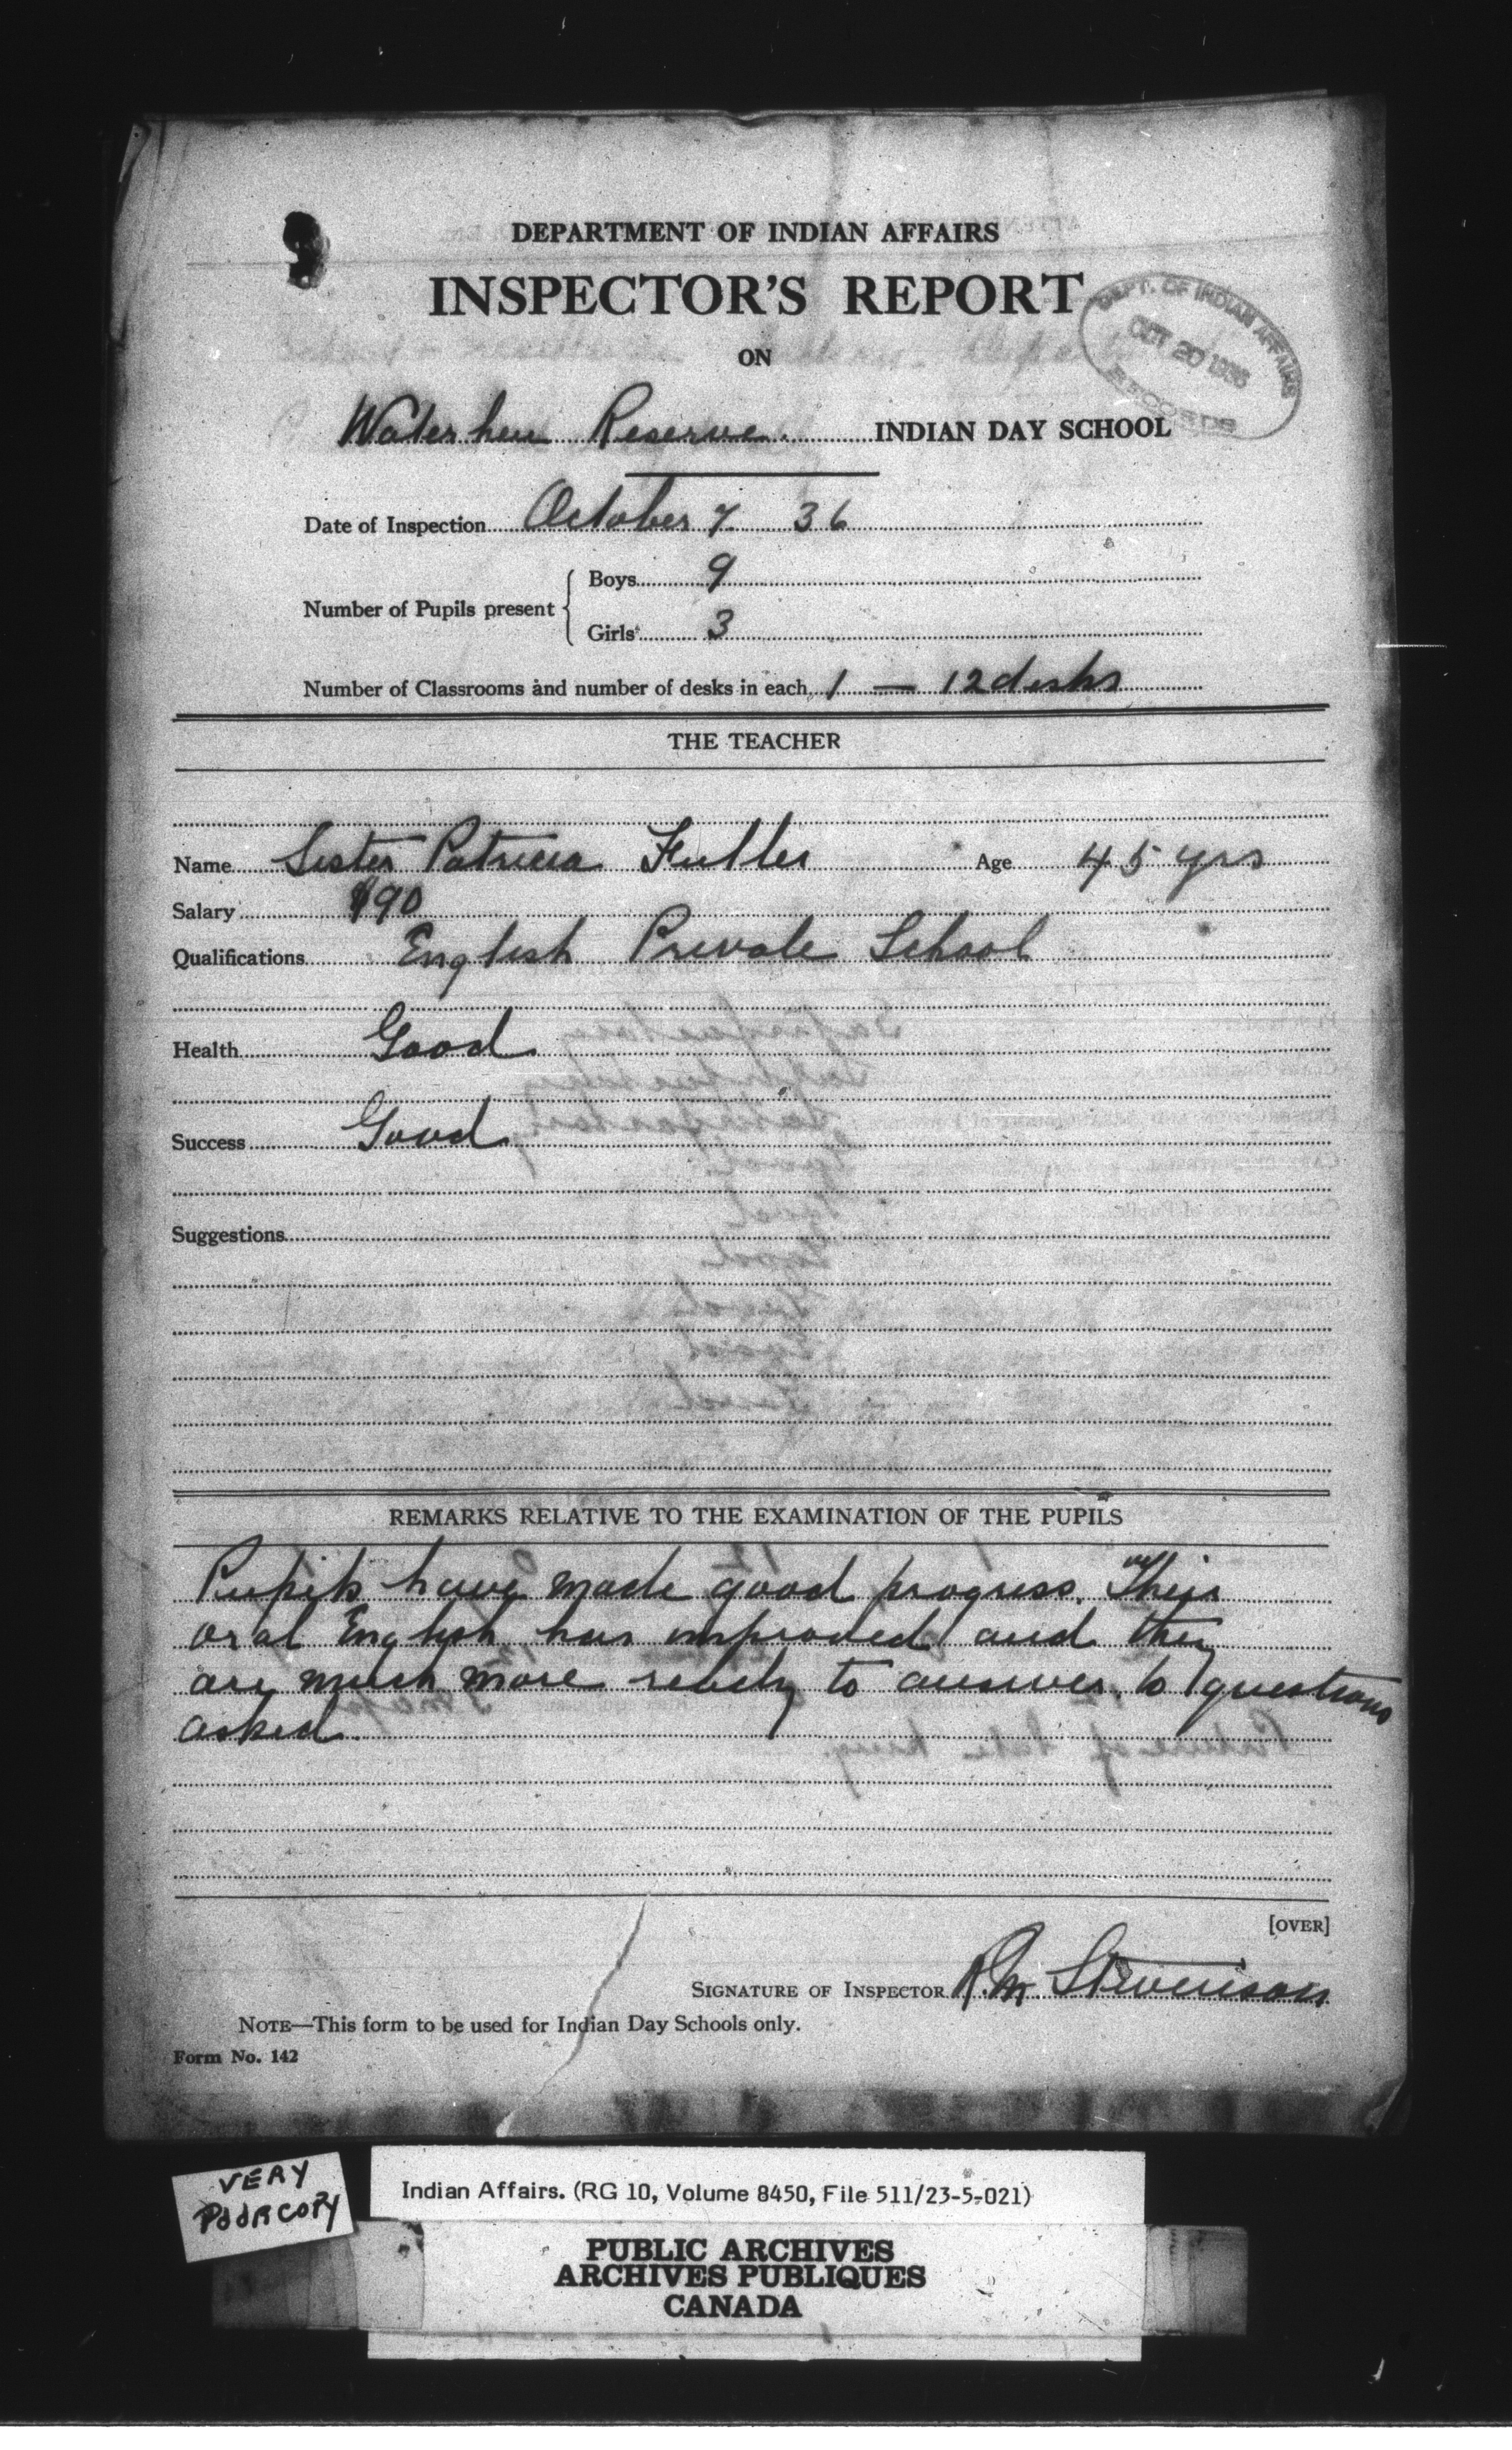 DEPARTMENT OF INDIAN AFFAIRS
INSPECTOR'S REPORT
ON
DEPT. OF INDIAN AFFAIRS
OCT 20 1936
RECORDS
Waterhen Reserve INDIAN DAY SCHOOL
Date of Inspection October 7 36
Number of Pupils present
Boys 9
Girls 3
Number of Classrooms and number of desks in each 1 — 12 desks
THE TEACHER
Name Sister Patricia Fuller Age 45 yrs
Salary $90
Qualifications English Private School
Health Good
Success Good
Suggestions
REMARKS RELATIVE TO THE EXAMINATION OF THE PUPILS
Pupils have made good progress. Their
oral English has improved and they
are much more ready to answer to questions
asked.
[OVER]
SIGNATURE OF INSPECTOR R.M. Stevenson
NOTE—This form to be used for Indian Day Schools only.
Form No. 142
VERY
POOR COPY
Indian Affairs. (RG 10, Volume 8450, File 511/23-5-021)
PUBLIC ARCHIVES
ARCHIVES PUBLIQUES
CANADA